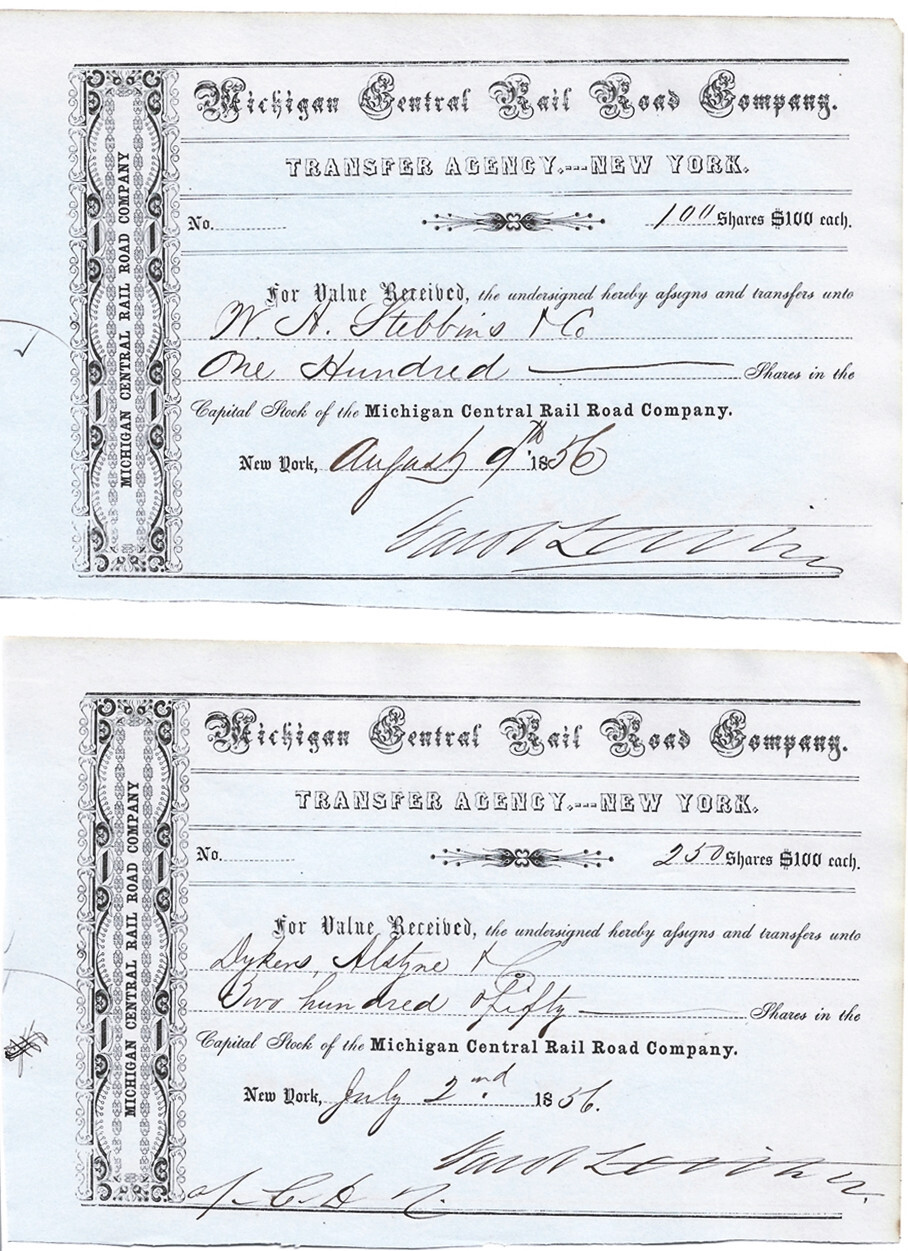 Michigan Central Rail Road Company.
TRANSFER AGENCY.---NEW YORK.
No. 100 Shares $100 each.
For Value Received, the undersigned hereby assigns and transfers unto
W. A. Stebbins & Co
One Hundred Shares in the
Capital Stock of the Michigan Central Rail Road Company.
New York, August 9th 1856
MICHIGAN CENTRAL RAIL ROAD COMPANY
Michigan Central Rail Road Company.
TRANSFER AGENCY.---NEW YORK.
No. 250 Shares $100 each.
For Value Received, the undersigned hereby assigns and transfers unto
Dykers, Alstyne & Co
Two hundred & Fifty Shares in the
Capital Stock of the Michigan Central Rail Road Company.
New York, July 2nd 1856.
MICHIGAN CENTRAL RAIL ROAD COMPANY